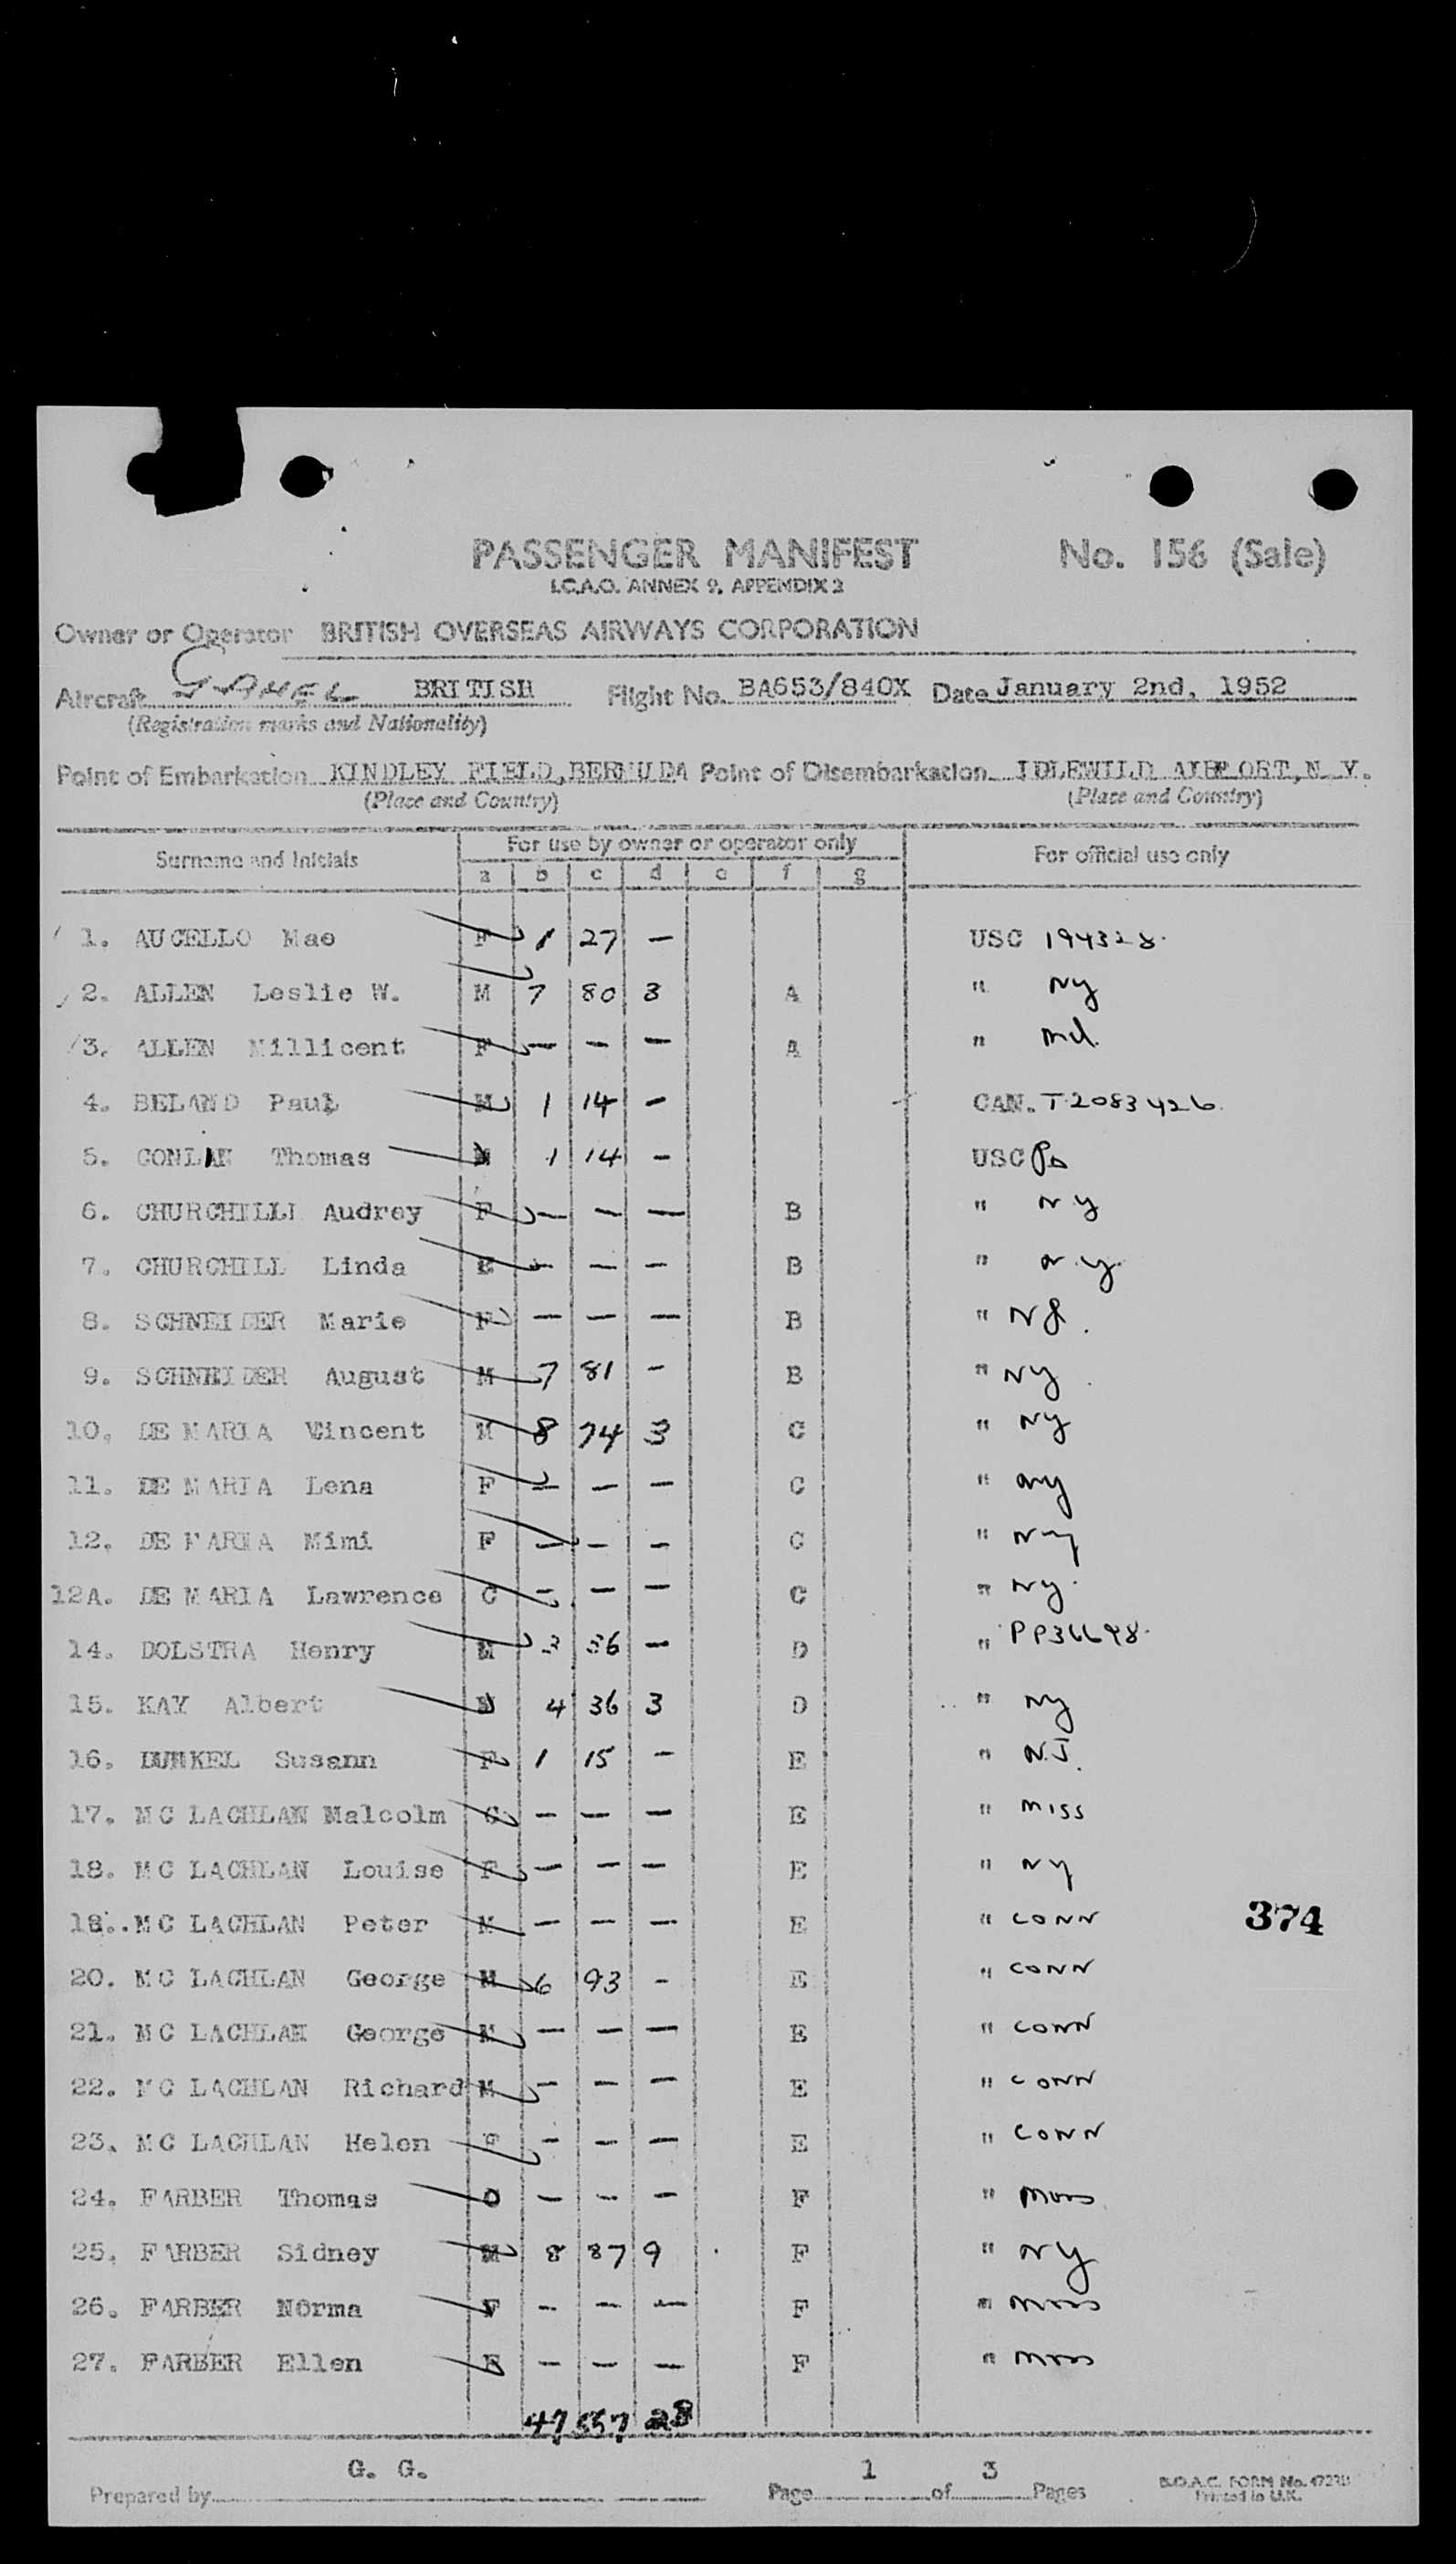 PASSENGER MANIFEST No. 156 (Sale)
I.C.A.O. ANNEX 9, APPENDIX 2
Owner or Operator BRITISH OVERSEAS AIRWAYS CORPORATION
Aircraft BRITISH Flight No. BA653/840X Date January 2nd, 1952
(Registration marks and Nationality)
Point of Embarkation KINDLEY FIELD, BERMUDA Point of Disembarkation IDLEWILD AIRPORT, N.Y.
(Place and Country) (Place and Country)
Surname and Initials For use by owner or operator only For official use only
a b c d e f g
1. AUCELLO Mae F 1 27 — USC 194328
2. ALLEN Leslie W. M 7 80 3 A " NY
3. ALLEN Millicent F — — — A " Md.
4. BELAND Paul M 1 14 — CAN. T.2083426
5. CONLAN Thomas M 1 14 — USC Pa
6. CHURCHILL Audrey F — — — B " N.Y
7. CHURCHILL Linda — — — B " N.Y.
8. SCHNEIDER Marie F — — — B " NY.
9. SCHNEIDER August M 7 81 — B " NY.
10. DE MARIA Vincent M 8 74 3 C " NY
11. DE MARIA Lena F — — — C " NY
12. DE MARIA Mimi F — — — C " NY
12A. DE MARIA Lawrence C — — — C " NY.
14. DOLSTRA Henry M 3 36 — D " PP36698
15. KAY Albert M 4 36 3 D " NY
16. DUNKEL Susann F 1 15 — E " N.J.
17. MC LACHLAN Malcolm C — — — E " MISS
18. MC LACHLAN Louise F — — — E " NY
18.. MC LACHLAN Peter M — — — E " CONN 374
20. MC LACHLAN George M 6 93 — E " CONN
21. MC LACHLAN George M — — — E " CONN
22. MC LACHLAN Richard M — — — E " CONN
23. MC LACHLAN Helen F — — — E " CONN
24. FARBER Thomas C — — — F " Mass
25. FARBER Sidney M 8 87 9 F " NY
26. FARBER Norma F — — — F " Mass
27. FARBER Ellen F — — — F " Mass
47 557 28
G. G.
Prepared by Page 1 of 3 Pages
B.O.A.C. FORM No.
Printed in U.K.